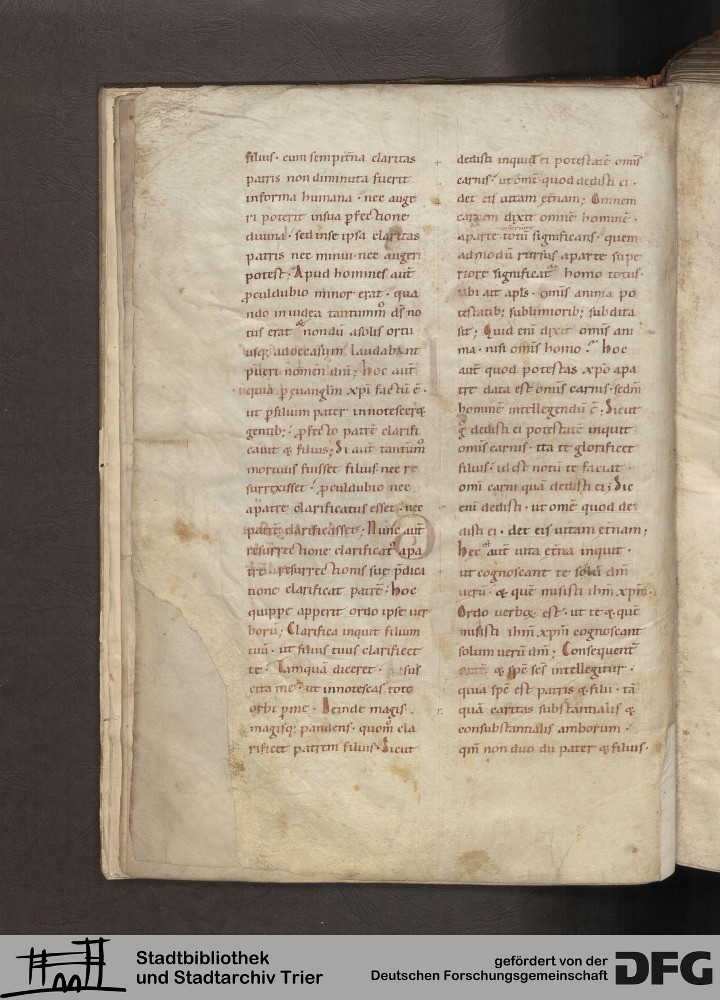 filius· cum sempit̄na claritas
patris non diminuta fuerit
in forma humana· nec auge
ri poterit in sua p̄fectione
diuina· sed in se ipsa claritas
patris nec minui nec augeri
potest; Apud homines aut̄
ꝓculdubio minor erat· qua
ndo in iudea tantummͦ dſ̄ no
tus erat & nondū a solis ortu
usq; ad occasum laudabant
pueri nomen dn̄i; hoc aut̄
quia p̄ euangłm xp̄i factū ē·
ut p̄ filium pater innotesceret
gentib; ꝓfecto patrē clarifi
cauit & filius; Si aut̄ tantūmͦ
mortuus fuisset filius nec re
surrexisset· ꝓculdubio nec
a patre clarificatus esset· nec
patrē clarificasset; Nunc aut̄
resurrectione clarificatꝰ a pa
tre· resurrectionis sue p̄dica
tione clarificat patrē· hoc
quippe apperit ordo ipse uer
borū; Clarifica inquit filium
tuū· ut filius tuus clarificet
te· Tamquā diceret· sus
cita me· ut innotescas toto
orbi p̄ me· Deinde magis
magisq; pandens· quomͦ cla
rificet patrem filius· Sicut
dedisti inquid ei potestatē omīs
carnis· ut om̄e quod dedisti ei·
det eis uitam et̄nam; Omnem
carnem dixit omnē hominē·
a parte totū significans· quem
admodū rursus a parte supe
riore significatꝰ homo totus·
ubi ait apłs· omīs anima po
testatib; sublimiorib; subdita
sit; Quid eni dixit omīs ani
ma· nisi omīs homo· hoc
aut̄ quod potestas xp̄o a pa
tre data est omīs carnis· sedm̄
hominē intellegendū ē; Sicut
g̊ dedisti ei potestatē inquit
omīs carnis· ita te glorificet
filius· id est notū te faciat
omī carni quā dedisti ei; Sic
eni dedisti· ut om̄e quod de
disti ei· det eis uitam et̄nam;
hec aut̄ uita et̄na inquit·
ut cognoscant te solū dm̄
uerū· & quē misisti ihm̄ xp̄m·
Ordo verboꝝ est· ut te & quē
misisti ihm̄ xp̄m cognoscant
solum uerū dm̄; Consequent̄
& sp̄s sc̄s intellegitur·
quia sp̄s est patris & filii· tā
quā caritas substantialis &
consubstantialis amborum·
qm̄ non duo dii pater & filius·
Stadtbibliothek
und Stadtarchiv Trier
gefördert von der
Deutschen Forschungsgemeinschaft
DFG